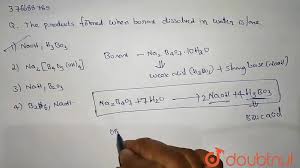 376688765
Q. The products formed when borax dissolved in water is/are.
1) NaOH, H3BO3
2) Na2[B4O5(OH)4]
3)
4) B2H6, NaOH
Borax – Na2B4O7·10H2O
weak acid (H3BO3) + strong base (NaOH)
Na2B4O7 + 7H2O → 2NaOH + 4H3BO3
Boric acid
doubtnut